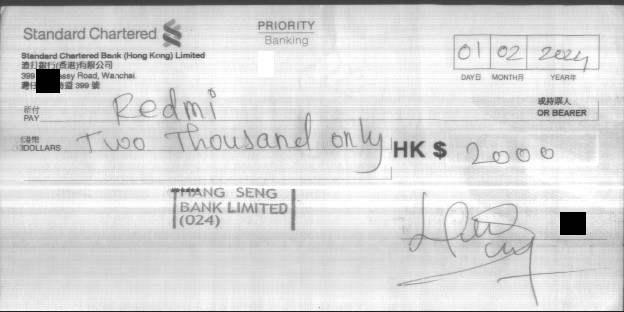 Standard Chartered
PRIORITY
Banking
Standard Chartered Bank (Hong Kong) Limited
渣打銀行(香港)有限公司
399 Road, Wanchai
399 號
01 02 2024
DAY日 MONTH月 YEAR年
祈付
PAY Redmi
或持票人
OR BEARER
港幣
DOLLARS Two Thousand only HK $ 2000
HANG SENG
BANK LIMITED
(024)